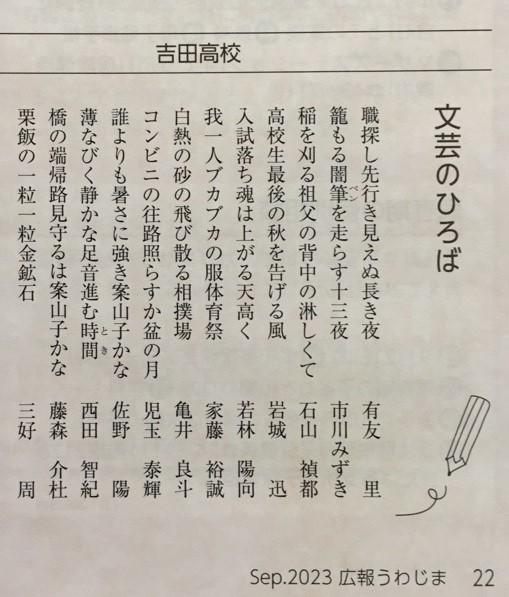 吉田高校
文芸のひろば
職探し先行き見えぬ長き夜 有友 里
籠もる闇筆を走らす十三夜 市川みずき
ペン
稲を刈る祖父の背中の淋しくて 石山 禎都
高校生最後の秋を告げる風 岩城 迅
入試落ち魂は上がる天高く 若林 陽向
我一人ブカブカの服体育祭 家藤 裕誠
白熱の砂の飛び散る相撲場 亀井 良斗
コンビニの往路照らすか盆の月 児玉 泰輝
誰よりも暑さに強き案山子かな 佐野 陽
薄なびく静かな足音進む時間 西田 智紀
とき
橋の端帰路見守るは案山子かな 藤森 介杜
栗飯の一粒一粒金鉱石 三好 周
Sep.2023 広報うわじま 22